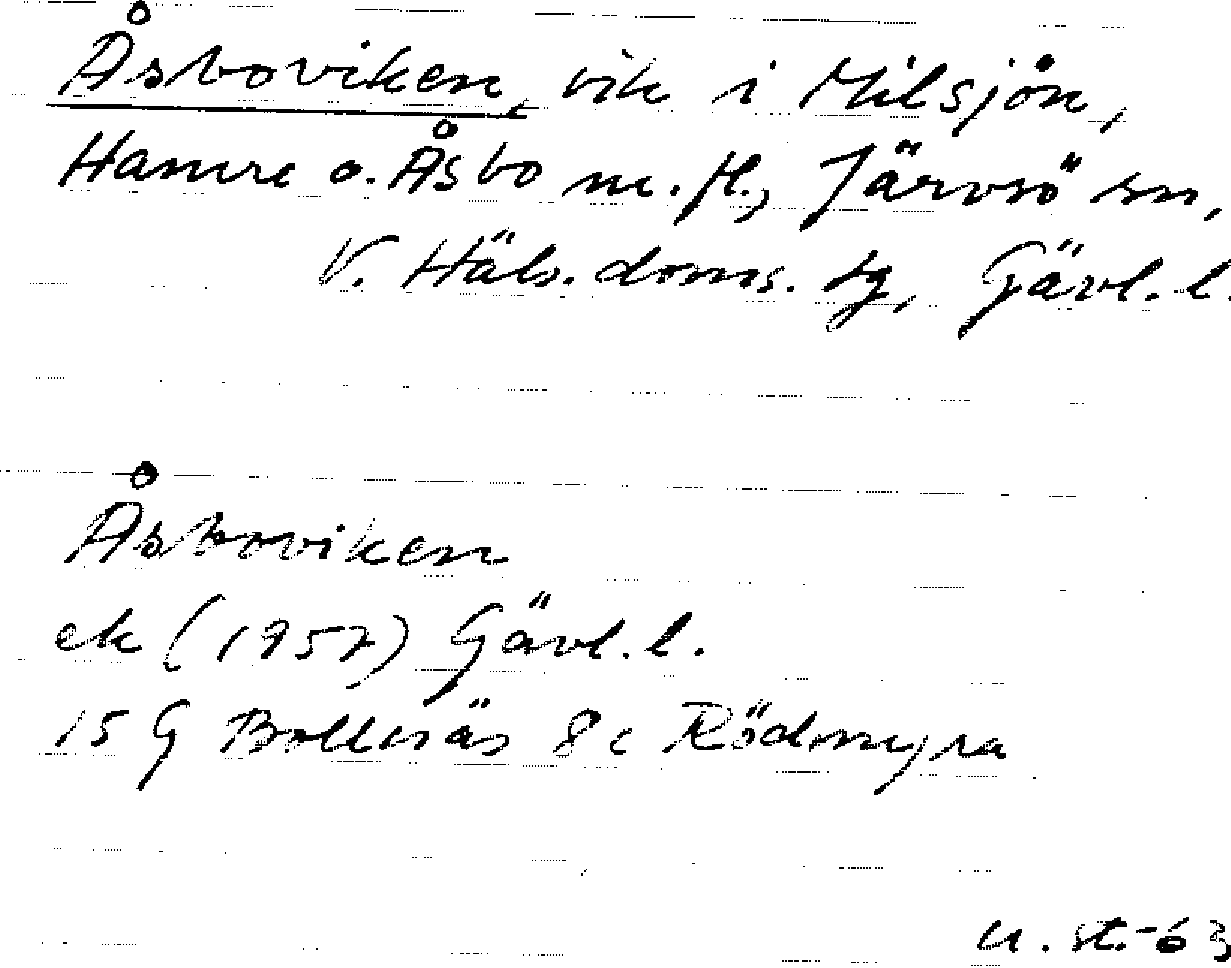 Åsboviken, vik i Milsjön,
Hamre o. Åsbo m.fl., Järvsö sn,
V. Häls. doms. tg, Gävl. l.
Åsboviken
ek (1957) Gävl. l.
15 G Bollnäs 8c Rödmyra
U. St.-63